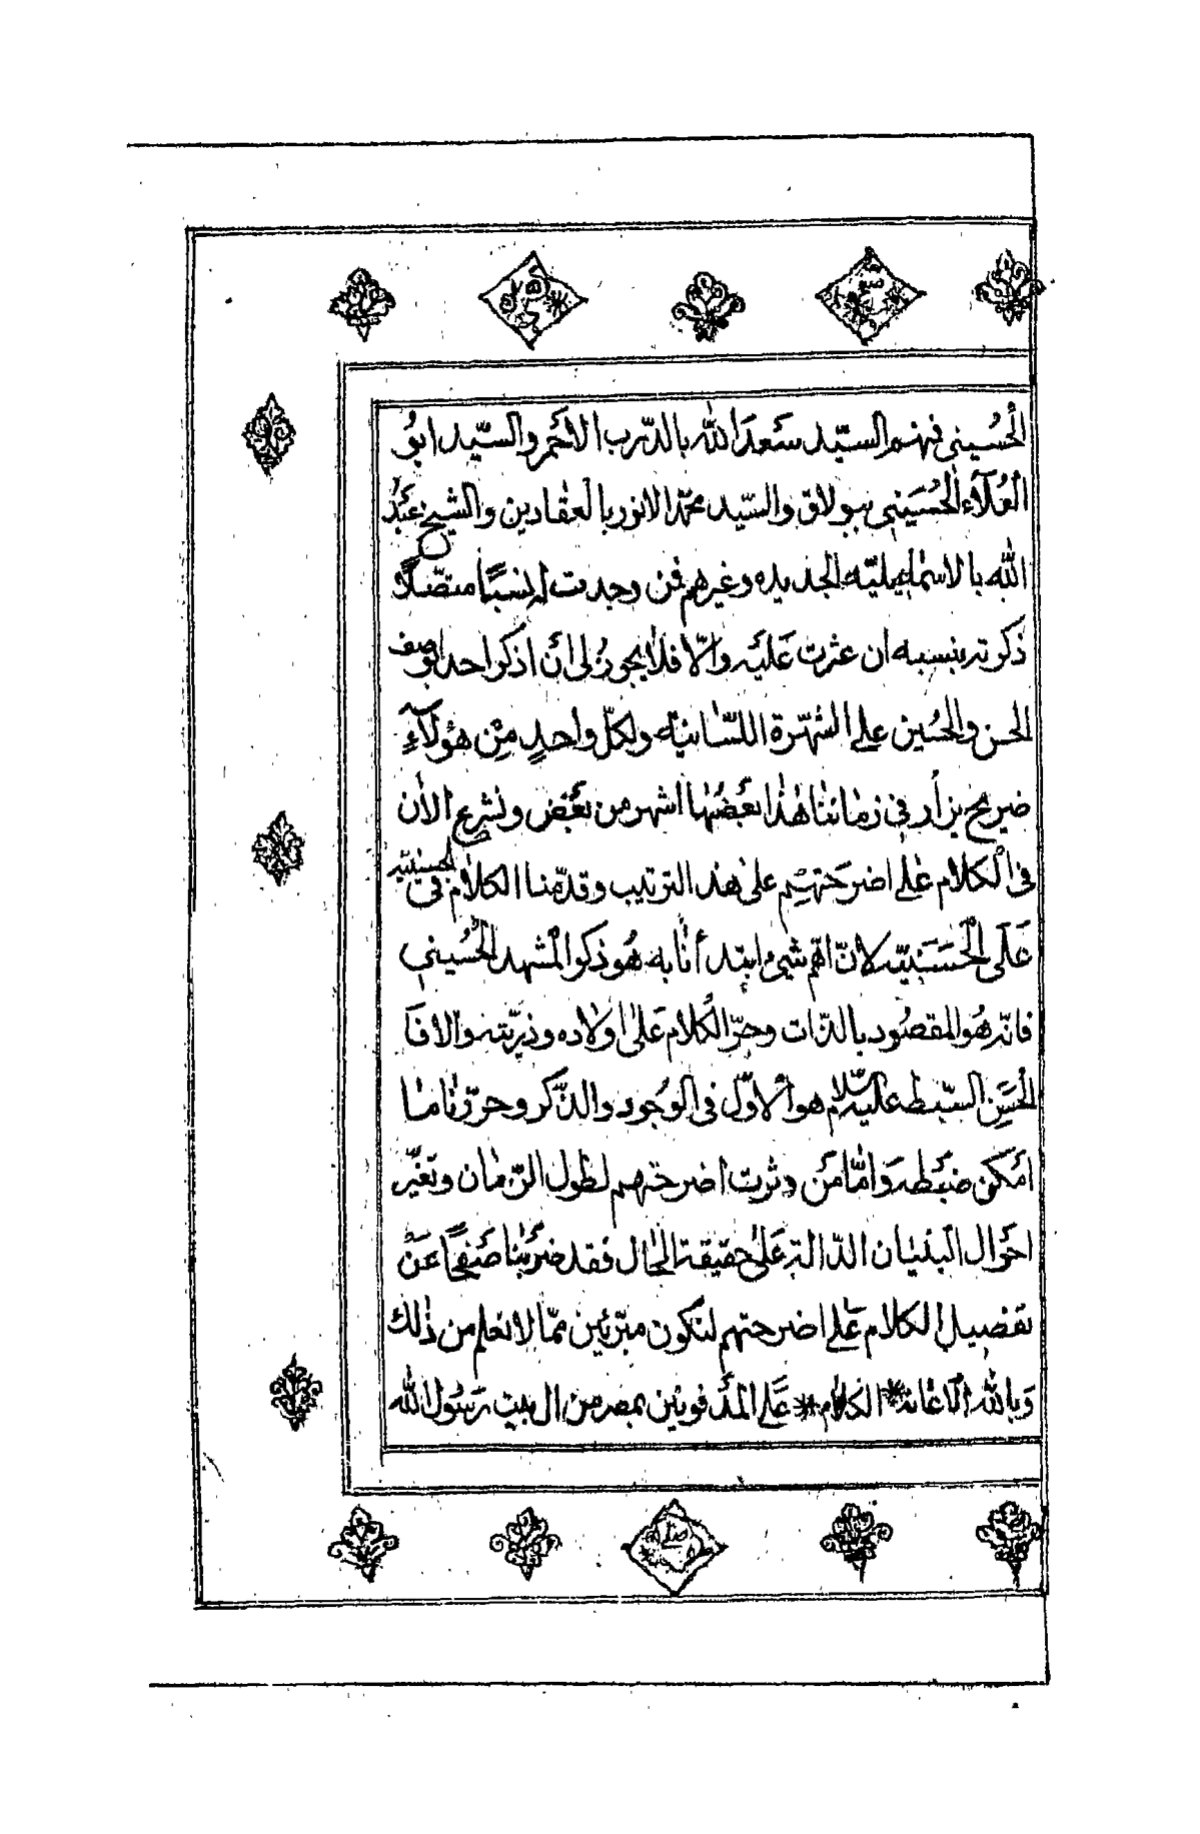 الحُسيني فمنهم السيّد سَعدَ الله بالدّرب الاحَمر والسيّد ابوُ
العُلآء الحُسَيني ببولاق والسّيد محمّد الانور بالعقادين والشيخ عَبدُ
الله بالاسماعيليّه الجديده وغيرهم فمن وجدت له نسبًا متصّلاً
ذكرته بنسبه ان عثرت عَليَه والّا فلا يجوزُ لى أن اذكر احدا بوصف
الحسن والحُسين على الشهّرة اللسّانيّه ولكلّ واحدٍ مِن هؤلآءِ
ضريح يزار في زماننا هذا بعَضُها اشهر من بعَض ونشرع الأن
فى الكلام عَلى اضرحَتهِم على هذا الترتيب وقدّمنا الكلام فى الحسينيّه
عَلَى الحَسَنيّه لانّ اهّم شيء ابتدأنا به هُو ذكر المشهد الحُسيني
فانّه هُو المقصُود بالذّات وجرّ الكلام عَلى اولاده وذريّته والافا
الحسَن السّبط عليه السّلام هو الأوّل فى الوجُود والذّكر وحرّرنا ما
امَكن ضبَطه وَامّا من دثرت اضرحتهم لطول الزّمان وتغيّر
احَوال البنيان الدّالة عَلى حقيقة الحال فقد ضرَبنا صَفحًا عَن
تفضيل الكلام عَلى اضرحتهم لنكون مبرّئين ممّا لا نعلم من ذلك
وَبالله الاعانة * الكلام * عَلى المدَفونين بمصر من ال بيت رَسُول الله